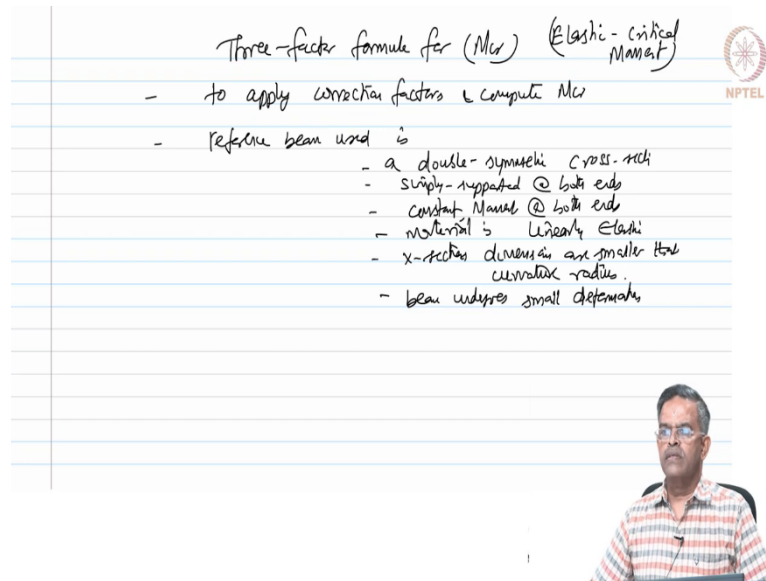 Three-factor formula for (Mcr) (Elastic-Critical
Moment)
NPTEL
- to apply correction factors & compute Mcr
- reference beam used is
- a double-symmetric cross-secti
- simply-supported @ both ends
- constant Moment @ both ends
- material is linearly Elastic
- x-section dimensions are smaller than
curvature radius.
- beam undergoes small deformations